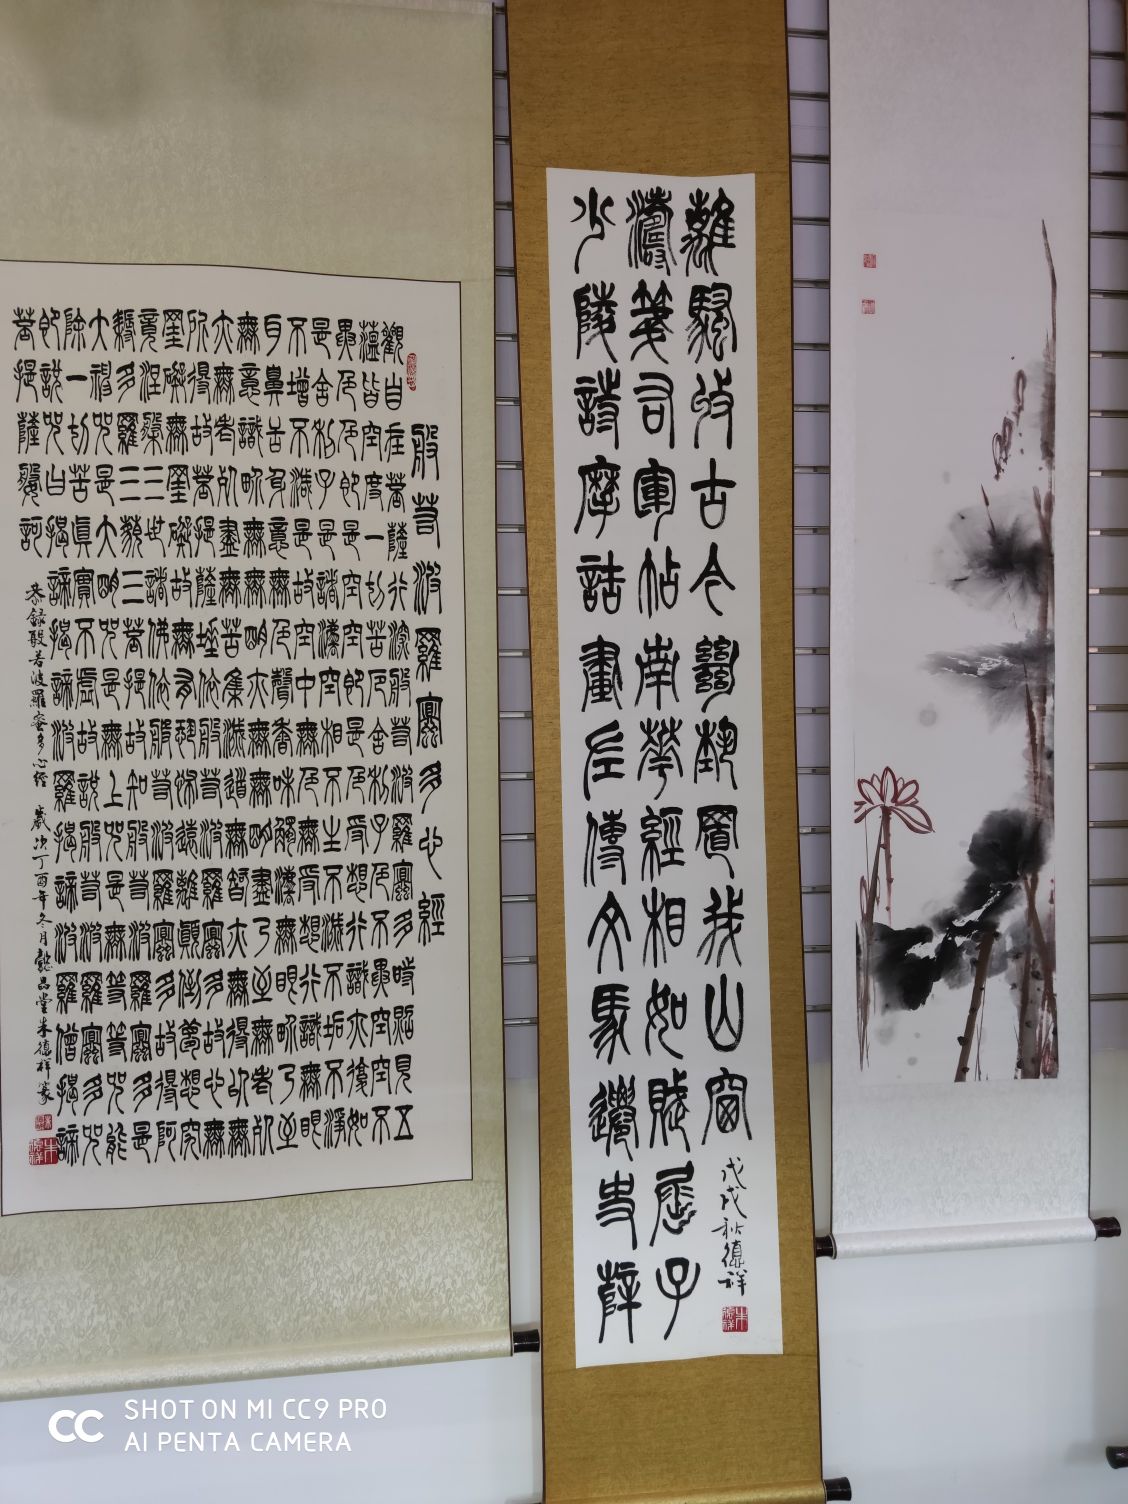 般若波羅蜜多心經
觀自在菩薩行深般若波羅蜜多時照見五
蘊皆空度一切苦厄舍利子色不異空空不
異色色即是空空即是色受想行識亦復如
是舍利子是諸法空相不生不滅不垢不淨
不增不減是故空中無色無受想行識無眼
耳鼻舌身意無色聲香味觸法無眼界乃至
無意識界無無明亦無無明盡乃至無老死
亦無老死盡無苦集滅道無智亦無得以無
所得故菩提薩埵依般若波羅蜜多故心無
罣礙無罣礙故無有恐怖遠離顛倒夢想究
竟涅槃三世諸佛依般若波羅蜜多故得阿
耨多羅三藐三菩提故知般若波羅蜜多是
大神咒是大明咒是無上咒是無等等咒能
除一切苦真實不虛故說般若波羅蜜多咒
即說咒曰揭諦揭諦波羅揭諦波羅僧揭諦
菩提薩婆訶
恭錄般若波羅蜜多心經 歲次丁酉年冬月懿品堂朱德祥篆
朱德祥
少陵詩摩詰畫左傳文馬遷史薛
濤箋右軍帖南華經相如賦屈子
離騷收古今絕藝置我山窗
戊戌秋德祥
朱德祥
SHOT ON MI CC9 PRO
AI PENTA CAMERA